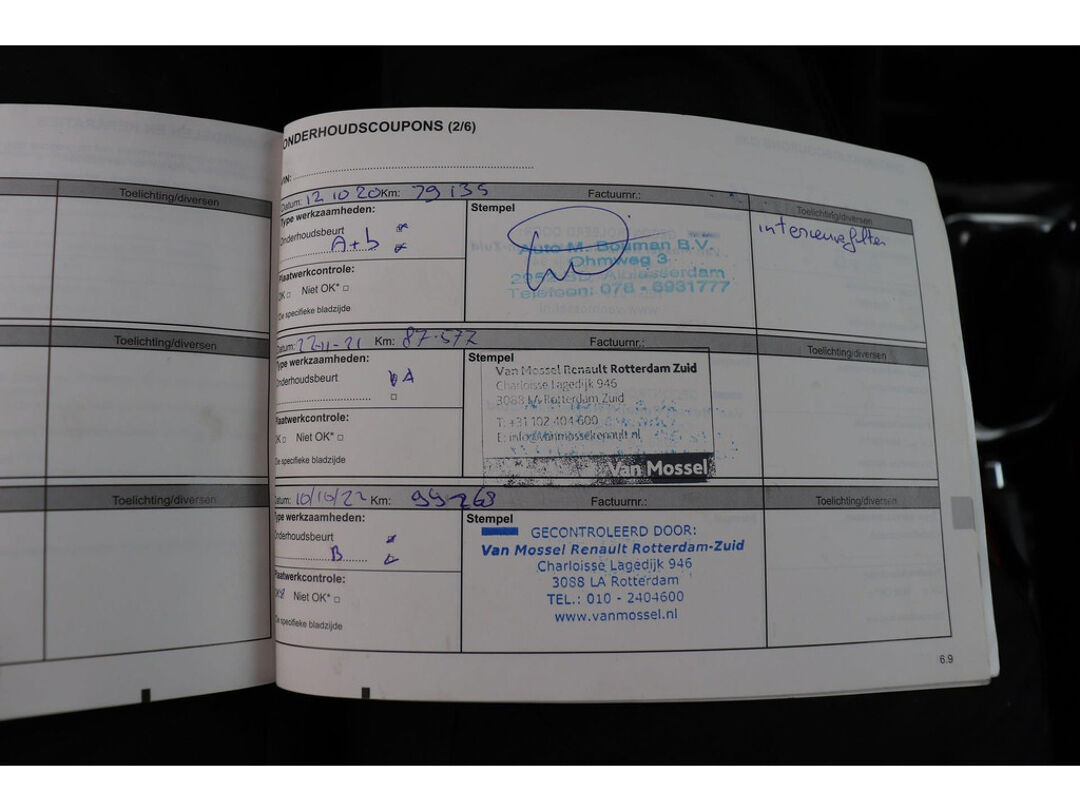 ONDERHOUDSCOUPONS (2/6)
VIN:
Datum: 12 10 20 Km: 79 135 Factuurnr.:
Toelichting/diversen
Type werkzaamheden:
Onderhoudsbeurt
A+b
Plaatwerkcontrole:
OK □ Niet OK* □
De specifieke bladzijde
Stempel
Auto M. Bouman B.V.
Ohmweg 3
Alblasserdam
Telefoon: 078 - 6931777
Toelichting/diversen
interieurfilter
Toelichting/diversen
Datum: 22-11-21 Km: 87.577 Factuurnr.:
Type werkzaamheden:
Onderhoudsbeurt A
Plaatwerkcontrole:
OK □ Niet OK* □
De specifieke bladzijde
Stempel
Van Mossel Renault Rotterdam Zuid
Charloisse Lagedijk 946
3088 LA Rotterdam Zuid
T: +31102 404 600
E: info@vanmosselrenault.nl
Van Mossel
Toelichting/diversen
Toelichting/diversen
Datum: 10/10/22 Km: 99268 Factuurnr.:
Type werkzaamheden:
Onderhoudsbeurt
B
Plaatwerkcontrole:
Niet OK* □
De specifieke bladzijde
Stempel
GECONTROLEERD DOOR:
Van Mossel Renault Rotterdam-Zuid
Charloisse Lagedijk 946
3088 LA Rotterdam
TEL.: 010 - 2404600
www.vanmossel.nl
Toelichting/diversen
6.9